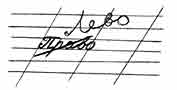 Лево
Право